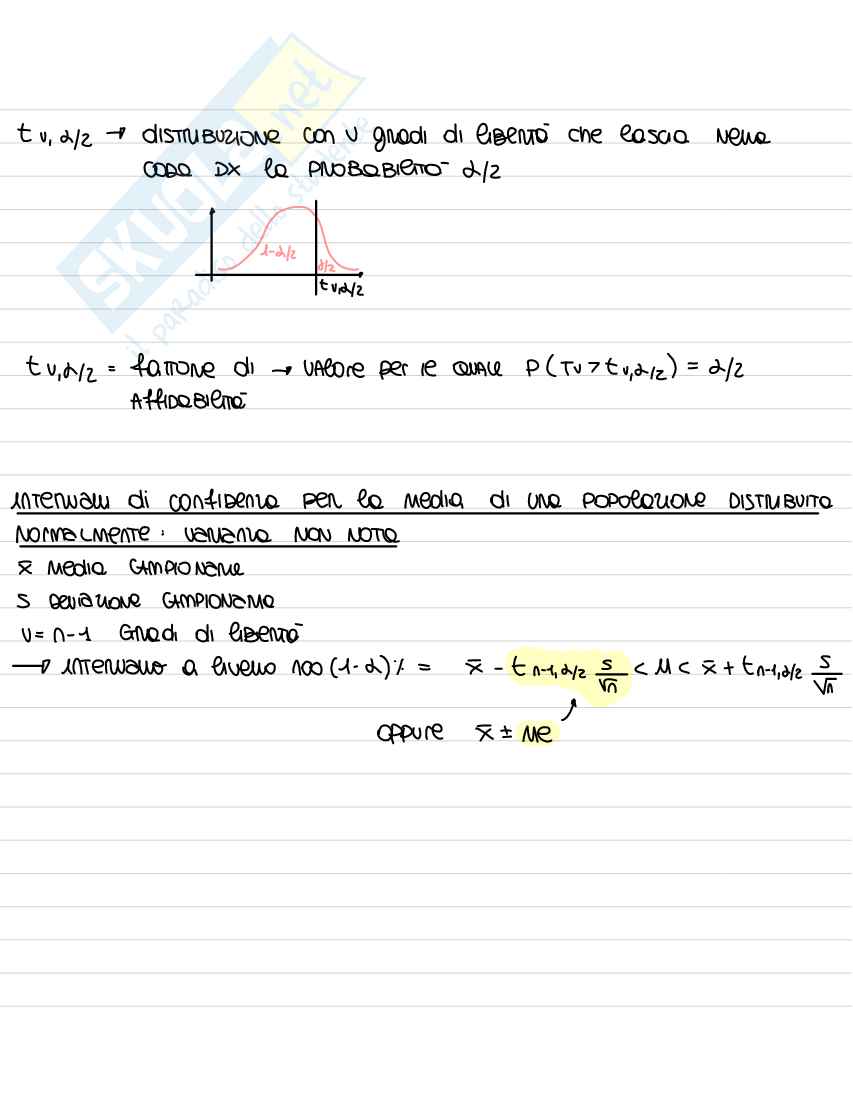 t ν, α/2 → DISTRIBUZIONE con ν gradi di libertà che lascia nella
CODA DX la PROBABILITÀ α/2
1-α/2
α/2
t ν,α/2
t ν,α/2 = fattore di → valore per il quale P(Tν > t ν,α/2) = α/2
AFFIDABILITÀ
INTERVALLI di confidenza per la media di una popolazione DISTRIBUITA
NORMALMENTE: varianza NON NOTA
x̄ media CAMPIONARIA
s deviazione CAMPIONARIA
ν = n-1 Gradi di libertà
→ intervallo a livello 100(1-α)% = x̄ - t n-1,α/2 s/√n < μ < x̄ + t n-1,α/2 s/√n
oppure x̄ ± ME
SKUOLA.net
il paradiso dello studente